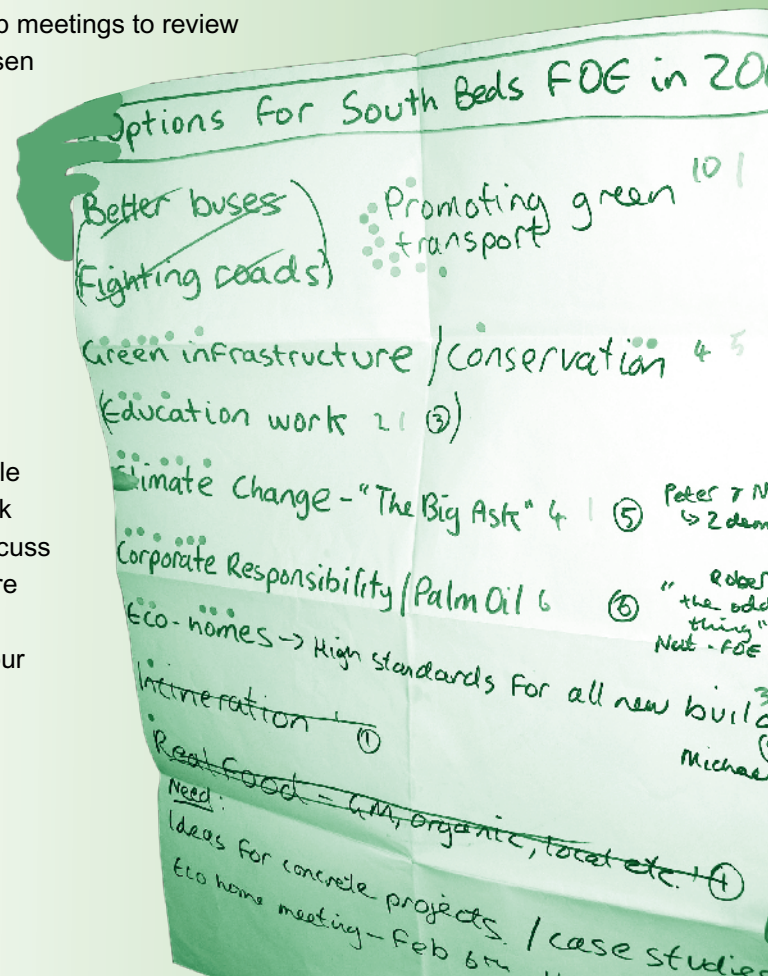 o meetings to review
sen
le
k
cuss
re
our
Options for South Beds FOE in 200
Better buses
Fighting roads
Promoting green 10 1
transport
Green infrastructure / Conservation 4 5
(Education work 2 1 ③)
Climate Change - "The Big Ask" 4 1 ⑤
Peter
↳ 2 dem
Corporate Responsibility / Palm Oil 6 ⑥
" Rober
the odd
thing"
FOE
Eco-homes → High standards for all new build
3
Michae
Incineration 1 ①
Real Food - GM, organic, local etc. 1
Need:
Ideas for concrete projects / case studies
Eco home meeting - Feb 6th